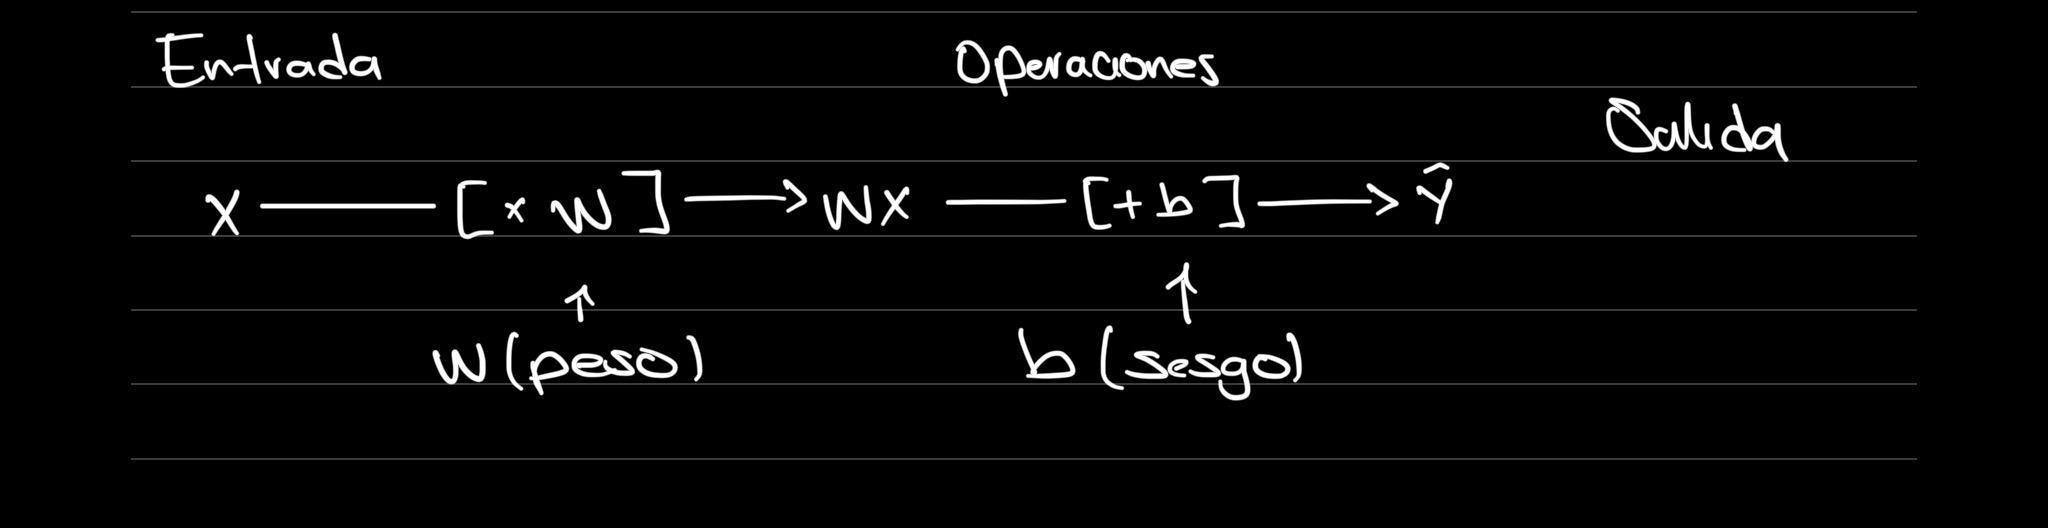 Entrada Operaciones
Salida
X [× W] → WX [+ b] → Ŷ
↑ ↑
W (peso) b (sesgo)